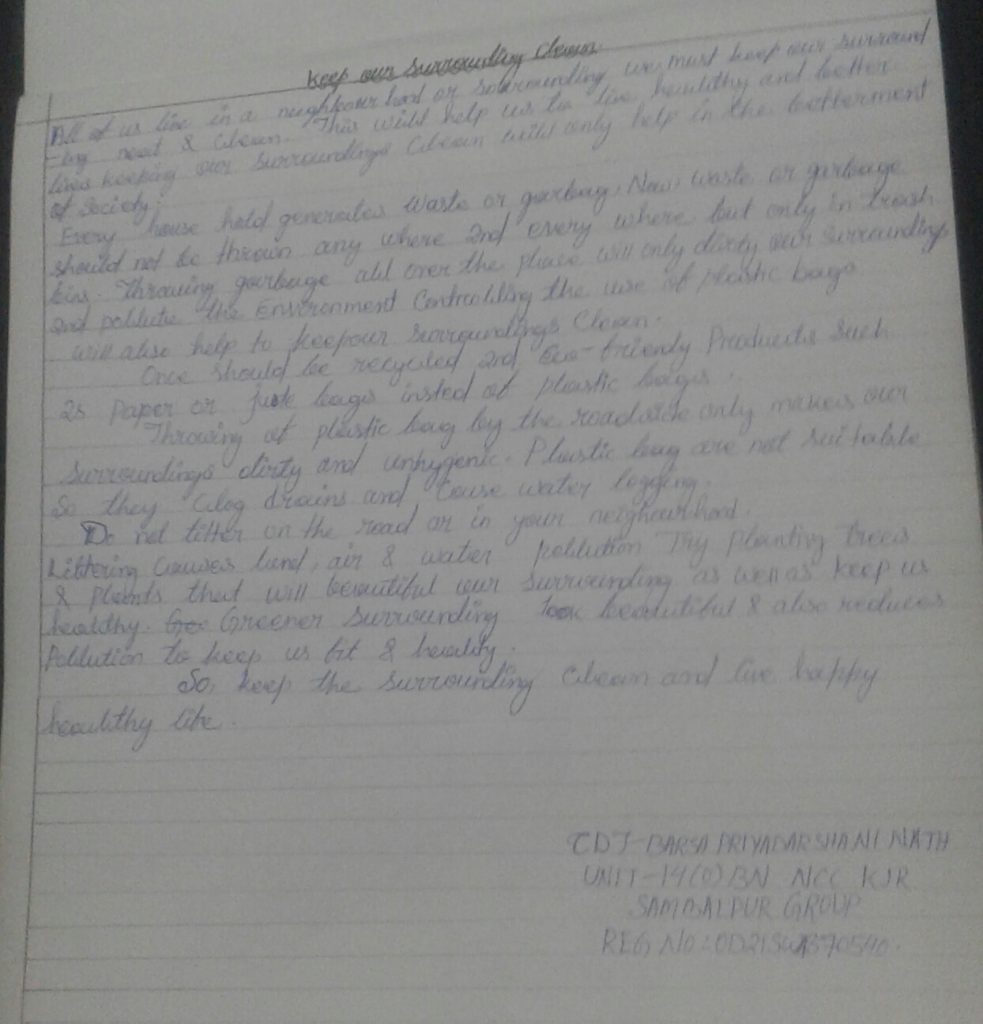 Keep our Surrounding Clean
All of us live in a neighbour hood or surrounding we must keep our surround
-ing neat & Clean. This will help us to live healthy and better
lives keeping our surroundings Clean will only help in the betterment
of Society.
Every house hold generates waste or garbag, Now, waste or garbage
should not be thrown any where 2nd every where but only in trash
bins. Throwing garbage all over the place will only dirty our surroundings
2nd pollute the Environment Controlling the use of plastic bags
will also help to keepour surroundings Clean.
Once should be recycled 2nd, Eco-friendy Products Such
2s paper or jute bags insted of plastic bags.
Throwing of plastic bag by the roadside only makes our
Surroundings dirty and unhygenic. Plastic bag are not suitable
So they Clog drains and Couse water logging.
Do not litter on the road or in your neighourhood.
Littering Causes land, air & water pollution Try planting trees
& plants that will beautiful our surrounding as well as keep us
healthy. Greener surrounding look beautiful & also reduces
Pollution to keep us fit & healty.
So, keep the surrounding Clean and live happy
healthy life.
CDT-BARSA PRIYADARSHANI NATH
UNIT-14(O) BN NCC KJR
SAMBALPUR GROUP
REG NO:OD21SWA570540.